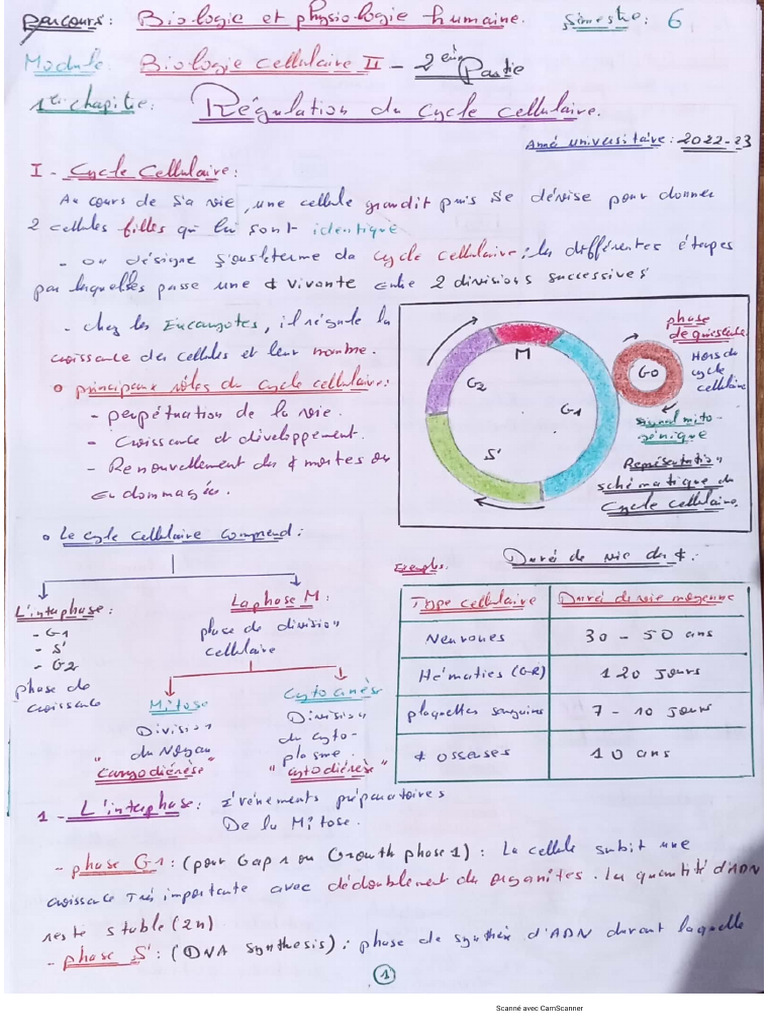 Parcours: Biologie et physiologie humaine. Simestre: 6
Module: Biologie Cellulaire II - 2ème Partie
1er chapitre: Régulation du Cycle cellulaire.
Anné universitaire: 2022-23
I - Cycle Cellulaire:
Au cours de sa vie, une cellule grandit puis se dévise pour donner
2 cellules filles qui lui sont identique
- on désigne sous le terme du cycle cellulaire; les différentes étapes
par lesquelles passe une ¢ vivante entre 2 divisions successives
- chez les Eucaryotes, il régule la
croissance des cellules et leur nombre.
o principaux rôles du cycle cellulaire:
- perpétuation de la vie.
- croissance et développement.
- Renouvellement des ¢ mortes ou
endommagées.
M
G2
G1
S
G0
phase
de quiescence
Hors du
cycle
cellulaire
signal mito-
génique
Représentation
schématique du
Cycle cellulaire.
o Le cycle cellulaire comprend:
L'interphase:
- G1
- S
- G2
phase de
croissance
La phase M:
phase de division
cellulaire
Mitose
Division
du Noyau
"caryodiérèse"
Cytocinèse
Division
du cyto-
plasme.
"cytodiérèse"
Exemples: Durée de vie des ¢:
Type cellulaire Durée de vie moyenne
Neurones 30 - 50 ans
Hématies (GR) 120 Jours
plaquettes sanguines 7 - 10 Jours
¢ osseuses 10 ans
1 - L'interphase: événements préparatoires
De la Mitose.
- phase G1: (pour Gap 1 ou Growth phase 1): La cellule subit une
croissance très importante avec dédoublement des organites. La quantité d'ADN
reste stable (2n)
- phase S: (DNA synthesis): phase de synthèse d'ADN durant laquelle
1
Scanné avec CamScanner